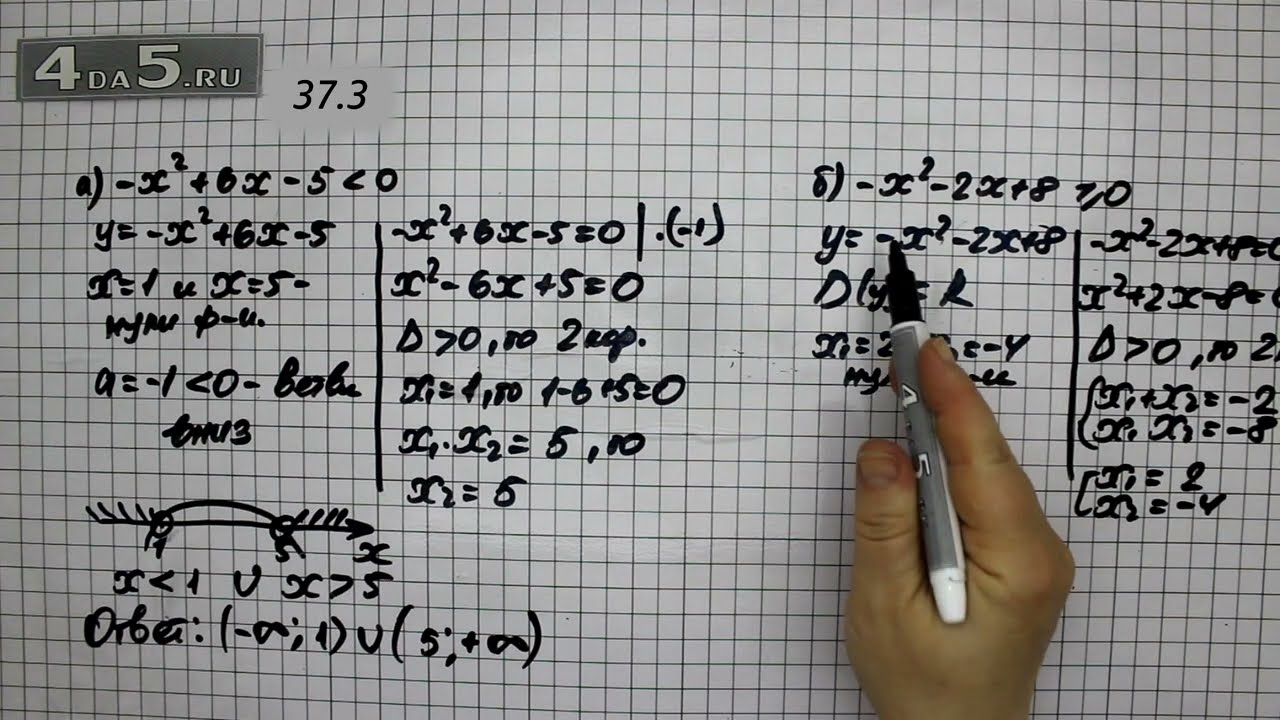 4DA5.RU
37.3
а) -x² + 6x - 5 < 0
y = -x² + 6x - 5
x = 1 и x = 5 -
нули ф-и.
a = -1 < 0 - ветви
вниз
-x² + 6x - 5 = 0 | ·(-1)
x² - 6x + 5 = 0
D > 0, то 2 кор.
x₁ = 1, то 1 - 6 + 5 = 0
x₁ · x₂ = 5, то
x₂ = 5
1 5 x
x < 1 ∪ x > 5
Ответ: (-∞; 1) ∪ (5; +∞)
б) -x² - 2x + 8 ≥ 0
y = -x² - 2x + 8
D(y) = R
x₁ = 2 = -4
нули
-x² - 2x + 8 = 0
x² + 2x - 8 =
D > 0, то 2
{x₁ + x₂ = -2
{x₁ x₂ = -8
{x₁ = 2
{x₂ = -4